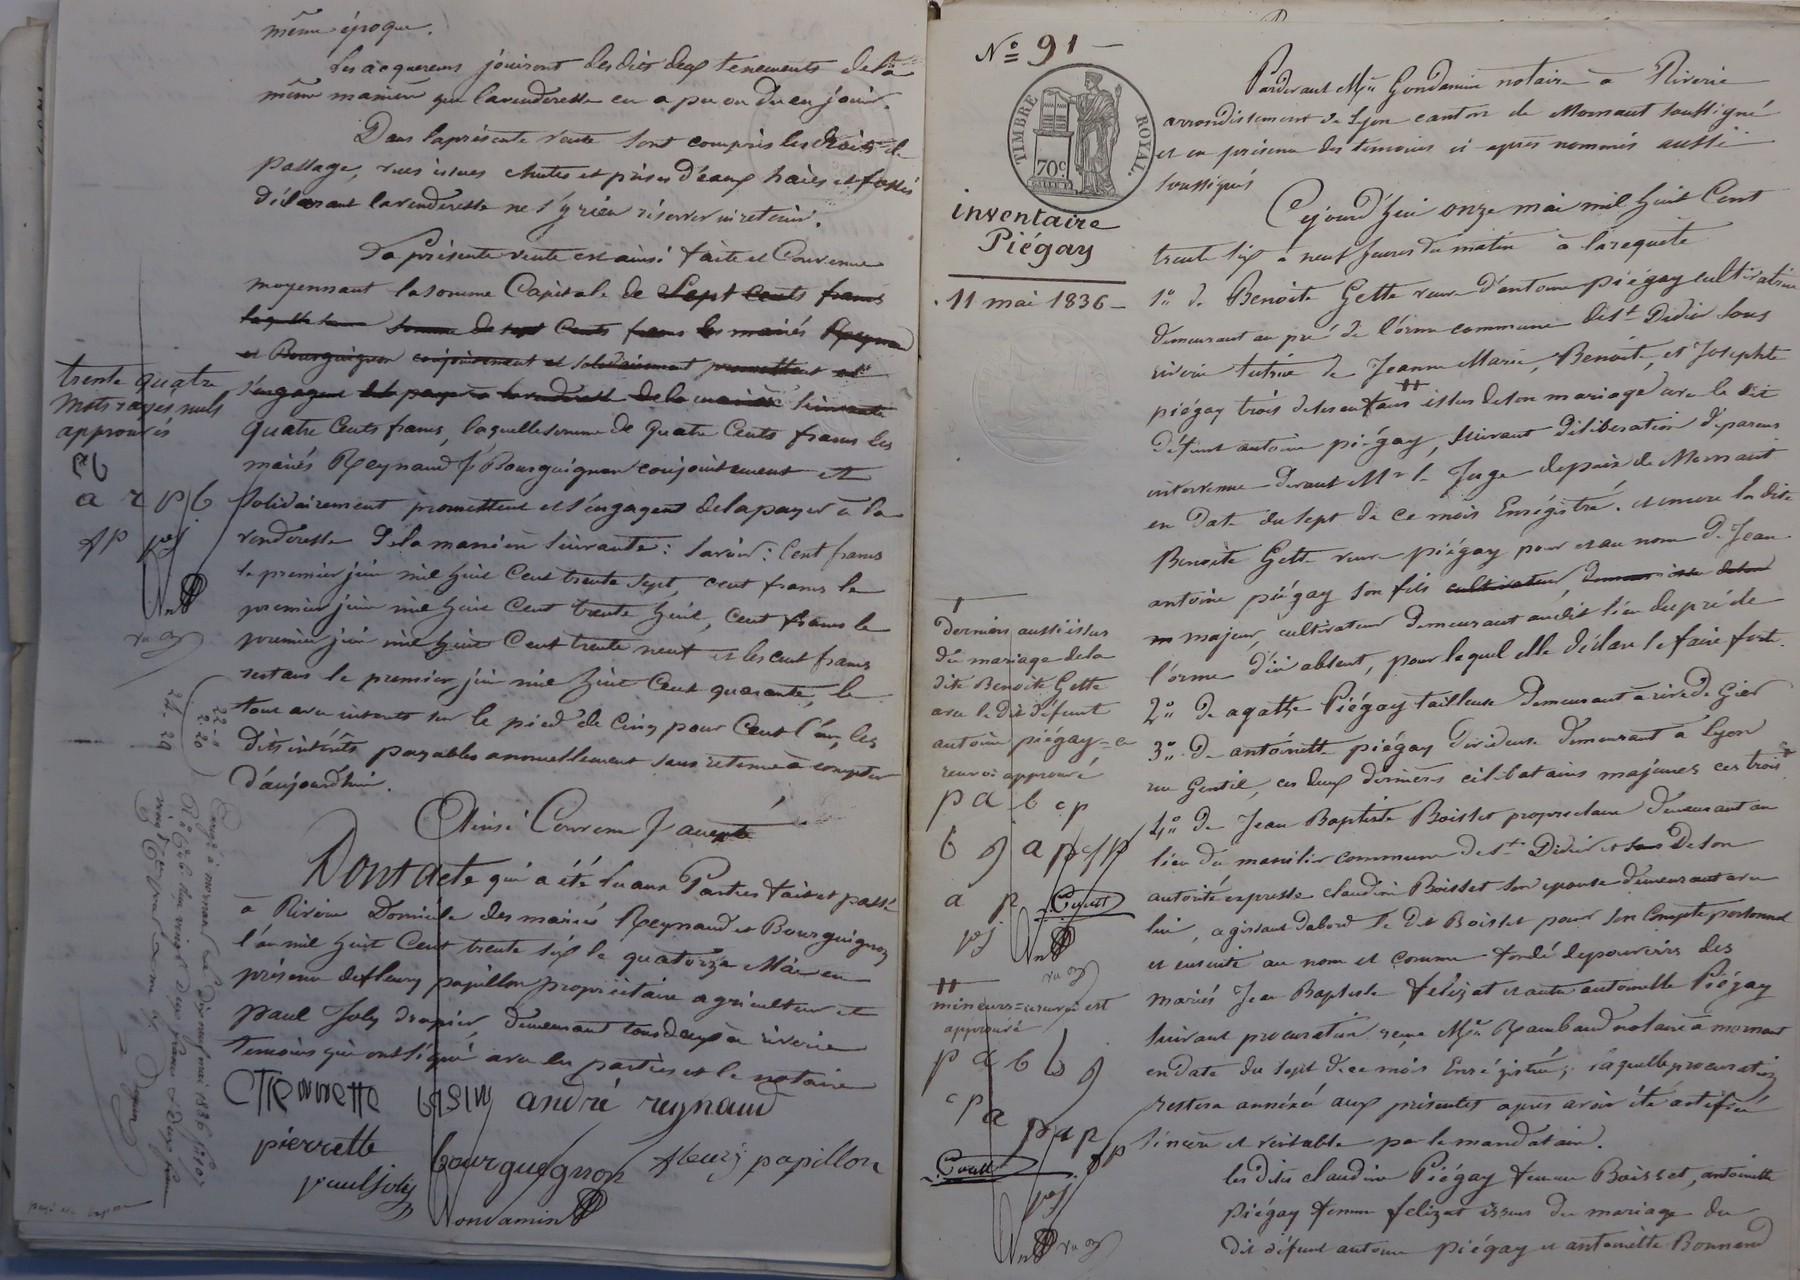 même époque.
Les acquereurs jouiront desdits deux tenements de la
même maniere que la venderesse en a pu ou du en jouir.
Dans la présente vente sont compris les droits de
passage, vues issues chutes et prises d'eaux haies et fossés
déclarant la venderesse ne s'y rien réserver ni retenir.
La présente vente est ainsi faite et Convenue
moyennant la somme Capitale de sept cents francs
laquelle somme de sept Cents francs les mariés Reynaud
et Bourguignon conjointement et solidairement promettent et
s'engagent de payer à la venderesse de la maniere suivante
quatre Cents francs, laquelle somme de quatre Cents francs les
mariés Reynaud & Bourguignon conjointement et
solidairement promettent et s'engagent de la payer à la
venderesse de la maniere suivante : savoir : Cent francs
le premier juin mil huit Cent trente sept, cent francs le
premier juin mil huit Cent trente huit, cent francs le
premier juin mil huit Cent trente neuf et les cent francs
restans le premier juin mil huit Cent quarante, le
tout avec intérets sur le pied de Cinq pour Cent l'an, les
dits intérêts payables annuellement sans retenue à compter
d'aujourd'hui.
Ainsi Convenu & accepté
Dont acte qui a été lu aux Parties fait et passé
à Riverie Domicile des mariés Reynaud et Bourguignon
l'an mil huit Cent trente six le quatorze Mai en
présence de fleury papillon propriétaire agriculteur et
paul Joly drapier, demeurant tous deux à riverie
temoins qui ont signé avec les parties et le notaire
trente quatre
mots rayés nuls
approuvés
a r p b
fp pj
22-"
2-20
24-29
ETIENNETTE andré reynaud
pierrette bourguignon fleury papillon
paul Joly
Gondamin
N° 91
TIMBRE ROYAL.
70c
inventaire
Piégay
11 mai 1836
Pardevant Me Gondamin notaire à Riverie
arrondissement de Lyon canton de Mornant soussigné
et en présence des temoins ci après nommés aussi
soussignés
Cejourd'hui onze mai mil huit Cent
trente six à neuf heures du matin à la requête
1° de Benoite Gette veuve d'antoine piégay cultivatrice
demeurant au pré de l'orme commune de St Didier sous
riverie tutrice de Jeanne Marie, Benoite, et Josephte
piégay trois de ses enfans issus de son mariage avec le dit
défunt antoine piégay, suivant délibération de parens
intervenue devant Mr le Juge de paix de Mornant
en date du sept de ce mois Enrégistré. et encore la dite
Benoite Gette veuve piégay pour et au nom de Jean
antoine piégay son fils cultivateur,
majeur, cultivateur demeurant audit lieu du pré de
l'orme d'ici absent, pour lequel elle déclare se faire forte.
2° de agathe Piégay tailleuse demeurant à rive de Gier
3° de antoinette piégay dévideuse demeurant à Lyon
rue Gentil, ces deux dernières célibataires majeures ces trois
4° de Jean Baptiste Boisset propriétaire demeurant au
lieu du manilier commune de St Didier et de son
autorité expresse claudine Boisset son epouse demeurant avec
lui, agissant dabord le dit Boisset pour son Compte personnel
et ensuite au nom et comme fondé de pouvoirs des
mariés Jean Baptiste felizat et autre antoinette Piégay
suivant procuration reçue Me Rambaud notaire à mornant
en date du sept de ce mois Enrégistrée, laquelle procuration
restera annéxée aux présentes après avoir été certifiée
sincere et véritable par le mandataire.
les dites claudine Piégay femme Boisset, antoinette
piégay femme felizat issues du mariage du
dit défunt antoine piégay et antoinette Bonnand
derniers aussi issus
du mariage de la
dite Benoite Gette
avec le dit défunt
antoine piégay = ce
renvoi approuvé
p a b c p
b j a p
a p
pj
mineurs = ce renvoi est
approuvé
p a b b j
c p a
p a p
pj